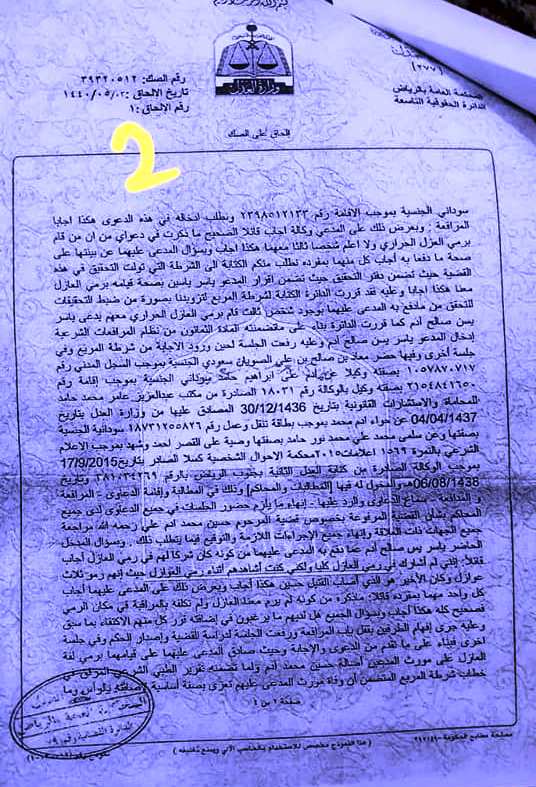 بسم الله الرحمن الرحيم
وزارة العدل
(٢٧٧)
المحكمة العامة بالرياض
الدائرة الحقوقية التاسعة
رقم الصك: ٣٩٣٢٠٥١٢
تاريخ الإلحاق: ١٤٤٠/٠٥/٠٢
رقم الإلحاق: ١
إلحاق على الصك
2
سوداني الجنسية بموجب الاقامة رقم ٢٣٩٨٥١٢١٣٣ ويطلب ادخاله في هذه الدعوى هكذا اجابا
المرافعة: وبعرض ذلك على المدعي وكالة اجاب قائلا الصحيح ما ذكرت في دعواي من ان من قام
برمي العزل الحراري ولا اعلم شخصا ثالثا معهما هكذا اجاب وبسؤال المدعى عليهما عن بينتها على
صحة ما دفعا به أجاب كل منهما بمفرده نطلب منكم الكتابة الى الشرطة التي تولت التحقيق في هذه
القضية حيث تضمن دفتر التحقيق حيث تضمن اقرار المدعو ياسر ياسين بصحة قيامه برمي العازل
معنا هكذا اجابا وعليه فقد قررت الدائرة الكتابة لشرطة المربع لتزويدنا بصورة من ضبط التحقيقات
للتحقق من مادفع به المدعى عليهما بوجود شخص ثالث قام برمي العازل الحراري معهم يدعى ياسر
يسن صالح آدم كما قررت الدائرة بناء على مقتضى المادة الثمانون من نظام المرافعات الشرعية
إدخال المدعو ياسر يسن صالح آدم وعليه رفعت الجلسة لحين ورود الاجابة من شرطة المربع وفي
جلسة أخرى وفيها حضر معاذ بن صالح بن علي الصويان سعودي الجنسية بموجب السجل المدني رقم
١٠٥٧٨٧٠٧١٧ بصفته وكيلا عن آدم على ابراهيم حامد سوداني الجنسية بموجب إقامة رقم
٢١٥٤٨٤٢٦٥٠ بصفته وكيل بالوكالة ١٨٠٣١ الصادرة من مكتب عبدالعزيز عامر محمد حامد
للمحاماة والاستشارات القانونية بتاريخ 30/12/1436 المصادق عليها من وزارة العدل بتاريخ
04/04/1437 عن حواء ادم محمد بموجب بطاقة تنقل وعمل رقم ١٨٧٣١٢٥٥٨٢٦ سودانية الجنسية
بصفتها وعن سلمى محمد علي محمد نور حامد بصفتها وصية على القصر احمد وشهد بموجب الاعلام
الشرعي بالنمرة ١٥٦٦ اعلامات ٢٠١٥ محكمة الاحوال الشخصية كسلا الصادر بتاريخ 17/9/2015
بموجب الوكالة الصادرة من كتابة العدل الثانية بجنوب الرياض بالرقم وتاريخ
06/08/1438 والمخول له فيها [المطالبات والمحاكم] وذلك في المطالبة وإقامة الدعاوى - المرافعة
و المدافعة - سماع الدعاوى والرد عليها - إنهاء ما يلزم حضور الجلسات في جميع الدعاوى لدى جميع
المحاكم بشأن القضية المرفوعة بخصوص قضية المرحوم حسين محمد ادم علي رحمه الله مراجعة
جميع الجهات ذات العلاقة وإنهاء جميع الإجراءات اللازمة والتوقيع فيما يتطلب ذلك وبسؤال المدخل
الحاضر ياسر يس صالح آدم عما دفع به المدعى عليهما من كونه كان شركا لهم في رمي العازل أجاب
قائلا: إنني لم أشارك في رمي العازل كليا ولكني كنت أشاهدهم أثناء رمي العوازل حيث إنهم رموثلاث
عوازل وكان الأخير هو الذي أصاب القتيل حسين هكذا أجاب وبعرض ذلك على المدعى عليهما أجاب
كل واحد منهما بمفرده قائلا: ماذكره من كونه لم يرم معنا العازل ولم تكلفه بالمراقبة في مكان الرمي
فصحيح كله هكذا أجاب وبسؤال الجميع هل لديهم ما يرغبون في إضافته قرر كل منهم الاكتفاء بما سبق
وعليه جرى إفهام الطرفين بقفل باب المرافعة ورفعت الجلسة لدراسة القضية وإصدار الحكم وفي جلسة
اخرى فبناء على ما تقدم من الدعوى والإجابة وحيث صادق المدعى عليهما على قيامهما برمي لفة
العازل على مورث المدعين أصالة حسين محمد آدم ولما تضمنه تقرير الطبي الشرعي المرفق في
خطاب شرطة المربع المتضمن أن وفاة مورث المدعى عليهم تعزى بصفة أساسية لإصابته بالرأس وما
صفحة ١ من ٤
(هذا النموذج مخصص للاستخدام بالحاسب الآلي ويمنع تغليفه)
مصلحة مطابع الحكومة
المحكمة العامة بالرياض